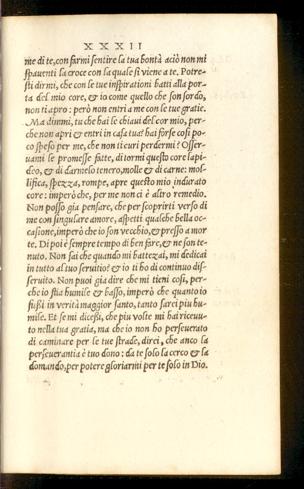 XXXII
me di te, con farmi sentire la tua bontà aciò non mi
spauenti la croce con la quale si viene a te. Potre-
sti dirmi, che con le tue inspirationi batti alla por-
ta del mio core, & io come quello che son sordo,
non ti apro: però non entri a me con le tue gratie.
Ma dimmi, tu che hai le chiaui del cor mio, per-
che non apri & entri in casa tua? hai forse cosi po-
co speso per me, che non ti curi perdermi? Osser-
uami le promesse fatte, di tormi questo core lapi-
deo, & di darnelo tenero, molle & di carne: mol-
lifica, spezza, rompe, apre questo mio indurato
core: imperò che, per me non ci è altro remedio.
Non posso gia pensare, che per scoprirti verso di
me con singulare amore, aspetti qualche bella oc-
casione, imperò che io son vecchio, & presso a mor
te. Di poi è sempre tempo di ben fare, & ne son te-
nuto. Non sai che quando mi battezai, mi dedicai
in tutto al tuo seruitio? & io ti ho di continuo dis-
seruito. Non puoi gia dire che mi tieni cosi, per-
che io stia humile & basso, imperò che quanto io
stessi in verità maggior santo, tanto sarei piu hu-
mile. Et se mi dicessi, che piu volte mi hai riceuu-
to nella tua gratia, ma che io non ho perseuerato
di caminare per le tue strade, direi, che anco la
perseuerantia è tuo dono: da te solo la cerco & la
domando, per potere gloriarmi per te solo in Dio.